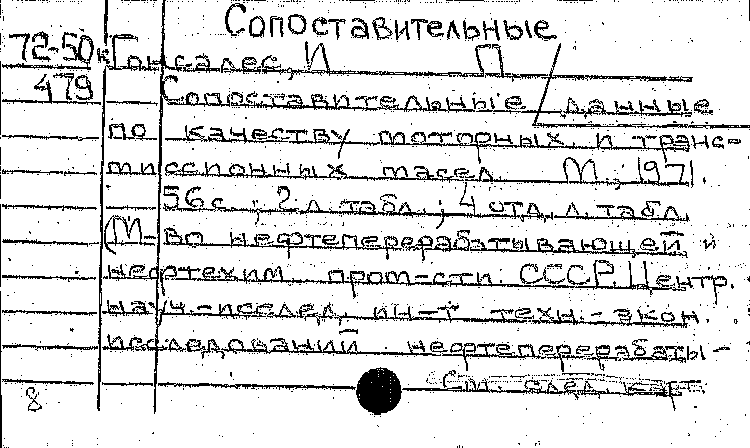 Сопоставительные
72-50к Гонсалес, И П
479 Сопоставительные данные
по качеству моторных и транс-
миссионных масел. М., 1971.
56 с.; 2 л. табл.; 4 отд. л. табл.
(М-во нефтеперерабатывающей и
нефтехим. пром-сти СССР. Центр.
науч.-исслед. ин-т техн.-экон.
исследований нефтеперерабаты-
См. след. карт.
8